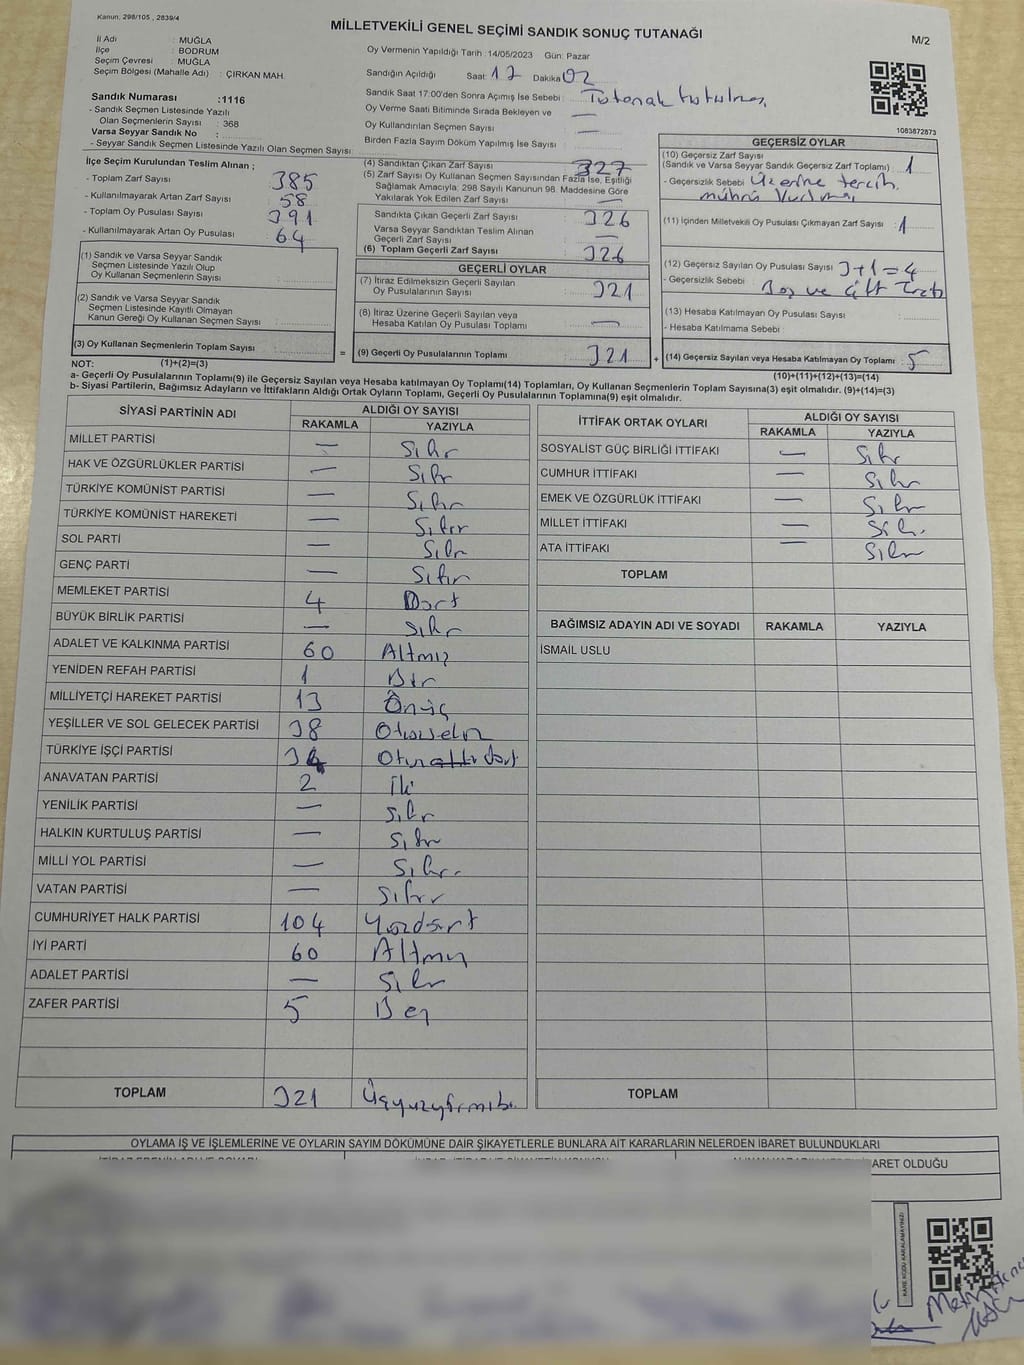 Kanun, 298/105 , 2839/4
MİLLETVEKİLİ GENEL SEÇİMİ SANDIK SONUÇ TUTANAĞI
M/2
İl Adı : MUĞLA
İlçe : BODRUM
Seçim Çevresi : MUĞLA
Seçim Bölgesi (Mahalle Adı) : ÇIRKAN MAH.
Sandık Numarası :1116
- Sandık Seçmen Listesinde Yazılı
Olan Seçmenlerin Sayısı : 368
Varsa Seyyar Sandık No :
- Seyyar Sandık Seçmen Listesinde Yazılı Olan Seçmen Sayısı
Oy Vermenin Yapıldığı Tarih :14/05/2023 Gün: Pazar
Sandığın Açıldığı Saat: 17 Dakika 02
Sandık Saat 17:00'den Sonra Açımış İse Sebebi : Tutanak tutulması
Oy Verme Saati Bitiminde Sırada Bekleyen ve —
Oy Kullandırılan Seçmen Sayısı —
Birden Fazla Sayım Döküm Yapılmış İse Sayısı
1083872873
İlçe Seçim Kurulundan Teslim Alınan ;
- Toplam Zarf Sayısı 385
- Kullanılmayarak Artan Zarf Sayısı 58
- Toplam Oy Pusulası Sayısı 391
- Kullanılmayarak Artan Oy Pusulası 64
(1) Sandık ve Varsa Seyyar Sandık
Seçmen Listesinde Yazılı Olup
Oy Kullanan Seçmenlerin Sayısı
(2) Sandık ve Varsa Seyyar Sandık
Seçmen Listesinde Kayıtlı Olmayan
Kanun Gereği Oy Kullanan Seçmen Sayısı
(3) Oy Kullanan Seçmenlerin Toplam Sayısı
(1)+(2)=(3)
(4) Sandıktan Çıkan Zarf Sayısı 327
(5) Zarf Sayısı Oy Kullanan Seçmen Sayısından Fazla İse, Eşitliği
Sağlamak Amacıyla; 298 Sayılı Kanunun 98. Maddesine Göre
Yakılarak Yok Edilen Zarf Sayısı —
Sandıkta Çıkan Geçerli Zarf Sayısı 326
Varsa Seyyar Sandıktan Teslim Alınan
Geçerli Zarf Sayısı —
(6) Toplam Geçerli Zarf Sayısı 326
GEÇERLİ OYLAR
(7) İtiraz Edilmeksizin Geçerli Sayılan
Oy Pusulalarının Sayısı 321
(8) İtiraz Üzerine Geçerli Sayılan veya
Hesaba Katılan Oy Pusulası Toplamı —
= (9) Geçerli Oy Pusulalarının Toplamı 321 +
GEÇERSİZ OYLAR
(10) Geçersiz Zarf Sayısı
(Sandık ve Varsa Seyyar Sandık Geçersiz Zarf Toplamı) 1
- Geçersizlik Sebebi Üzerine tercih
mührü Vurlması
(11) İçinden Milletvekili Oy Pusulası Çıkmayan Zarf Sayısı : 1
(12) Geçersiz Sayılan Oy Pusulası Sayısı 3+1=4
- Geçersizlik Sebebi : Boş ve Çift
(13) Hesaba Katılmayan Oy Pusulası Sayısı :
- Hesaba Katılmama Sebebi :
(14) Geçersiz Sayılan veya Hesaba Katılmayan Oy Toplamı 5
(10)+(11)+(12)+(13)=(14)
NOT:
a- Geçerli Oy Pusulalarının Toplamı(9) ile Geçersiz Sayılan veya Hesaba katılmayan Oy Toplamı(14) Toplamları, Oy Kullanan Seçmenlerin Toplam Sayısına(3) eşit olmalıdır. (9)+(14)=(3)
b- Siyasi Partilerin, Bağımsız Adayların ve İttifakların Aldığı Ortak Oyların Toplamı, Geçerli Oy Pusulalarının Toplamına(9) eşit olmalıdır.
SİYASİ PARTİNİN ADI ALDIĞI OY SAYISI
RAKAMLA YAZIYLA
MİLLET PARTİSİ — Sıfır
HAK VE ÖZGÜRLÜKLER PARTİSİ — Sıfır
TÜRKİYE KOMÜNİST PARTİSİ — Sıfır
TÜRKİYE KOMÜNİST HAREKETİ — Sıfır
SOL PARTİ — Sıfır
GENÇ PARTİ — Sıfır
MEMLEKET PARTİSİ 4 Dört
BÜYÜK BİRLİK PARTİSİ — Sıfır
ADALET VE KALKINMA PARTİSİ 60 Altmış
YENİDEN REFAH PARTİSİ 1 Bir
MİLLİYETÇİ HAREKET PARTİSİ 13 Onüç
YEŞİLLER VE SOL GELECEK PARTİSİ 38 Otuzsekiz
TÜRKİYE İŞÇİ PARTİSİ 34 Otuz dört
ANAVATAN PARTİSİ 2 İki
YENİLİK PARTİSİ — Sıfır
HALKIN KURTULUŞ PARTİSİ — Sıfır
MİLLİ YOL PARTİSİ — Sıfır
VATAN PARTİSİ — Sıfır
CUMHURİYET HALK PARTİSİ 104 Yüzdört
İYİ PARTİ 60 Altmış
ADALET PARTİSİ — Sıfır
ZAFER PARTİSİ 5 Beş
TOPLAM 321 Üçyüzyirmibir
İTTİFAK ORTAK OYLARI ALDIĞI OY SAYISI
RAKAMLA YAZIYLA
SOSYALİST GÜÇ BİRLİĞİ İTTİFAKI — Sıfır
CUMHUR İTTİFAKI — Sıfır
EMEK VE ÖZGÜRLÜK İTTİFAKI — Sıfır
MİLLET İTTİFAKI — Sıfır
ATA İTTİFAKI — Sıfır
TOPLAM
BAĞIMSIZ ADAYIN ADI VE SOYADI RAKAMLA YAZIYLA
İSMAİL USLU
TOPLAM
OYLAMA İŞ VE İŞLEMLERİNE VE OYLARIN SAYIM DÖKÜMÜNE DAİR ŞİKAYETLERLE BUNLARA AİT KARARLARIN NELERDEN İBARET BULUNDUKLARI
ARET OLDUĞU
KARE KODU KARALAMAYINIZ!